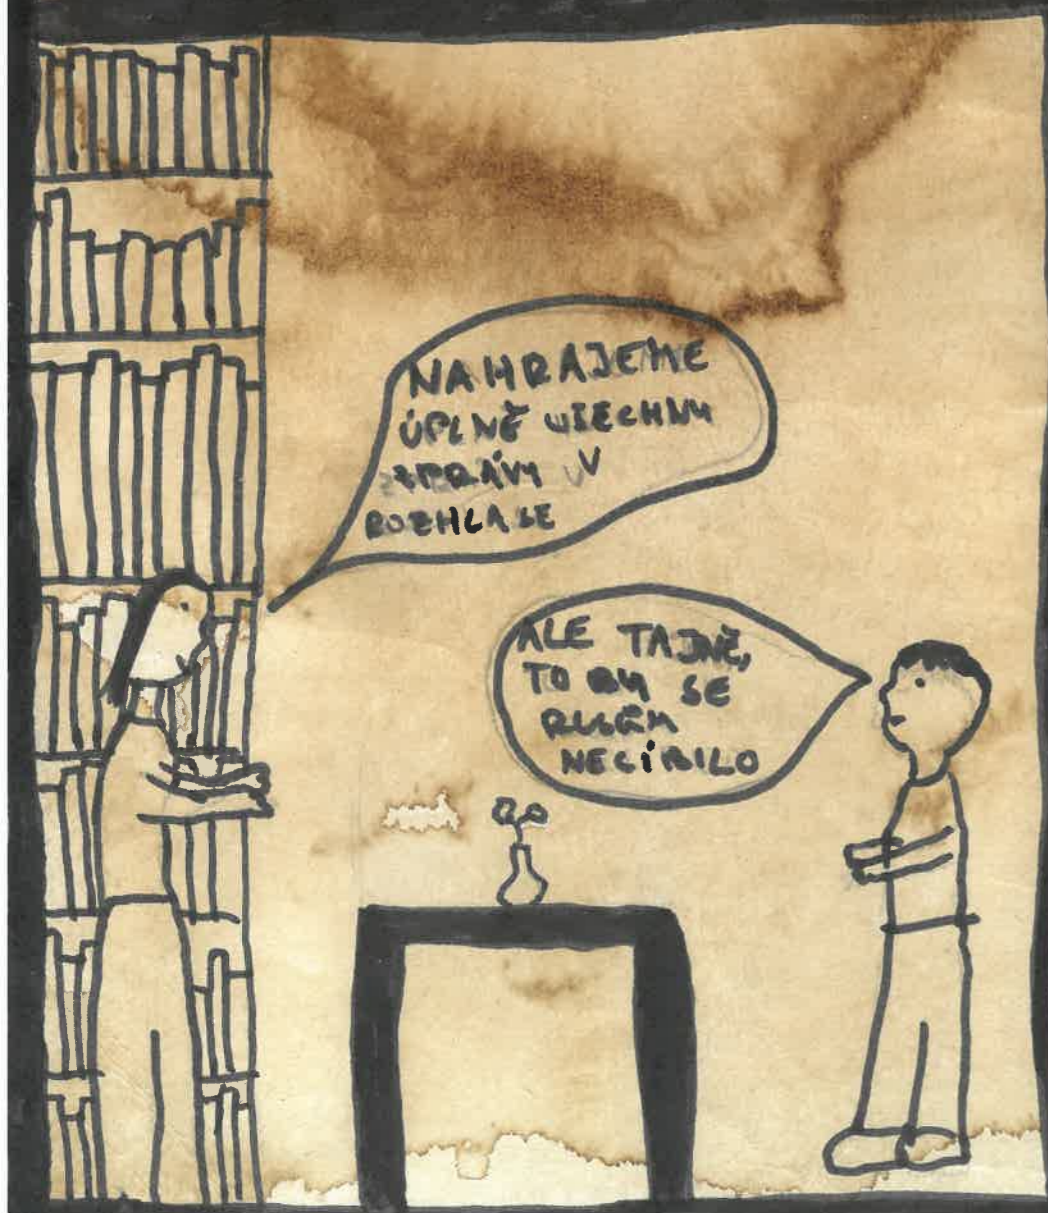 NAHRAJEME
ÚPLNĚ VŠECHNY
ZPRÁVY V
ROZHLASE
ALE TAJNĚ,
TO BY SE
RUSŮM
NELÍBILO